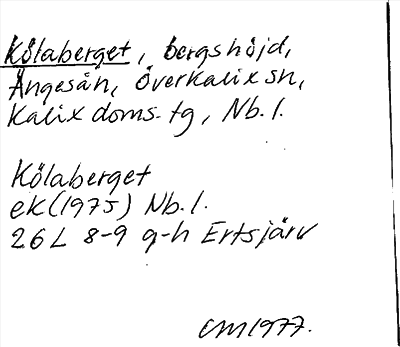 Kölaberget, bergshöjd,
Ängesån, Överkalix sn,
Kalix doms. tg, Nb. l.
Kölaberget
ek (1975) Nb. l.
26 L 8-9 g-h Ertsjärv
CM 1977.